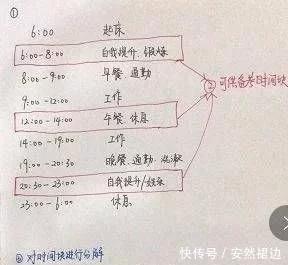 ①
6:00 起床
6:00-8:00 自我提升、锻炼
8:00-9:00 早餐、通勤
9:00-12:00 工作
12:00-14:00 午餐、休息
14:00-19:00 工作
19:00-20:30 晚餐、通勤、洗漱
20:30-23:00 自我提升/娱乐
23:00-6:00 休息
② 可供备考时间块
③ 对时间块进行分解
快传号/安然裙边